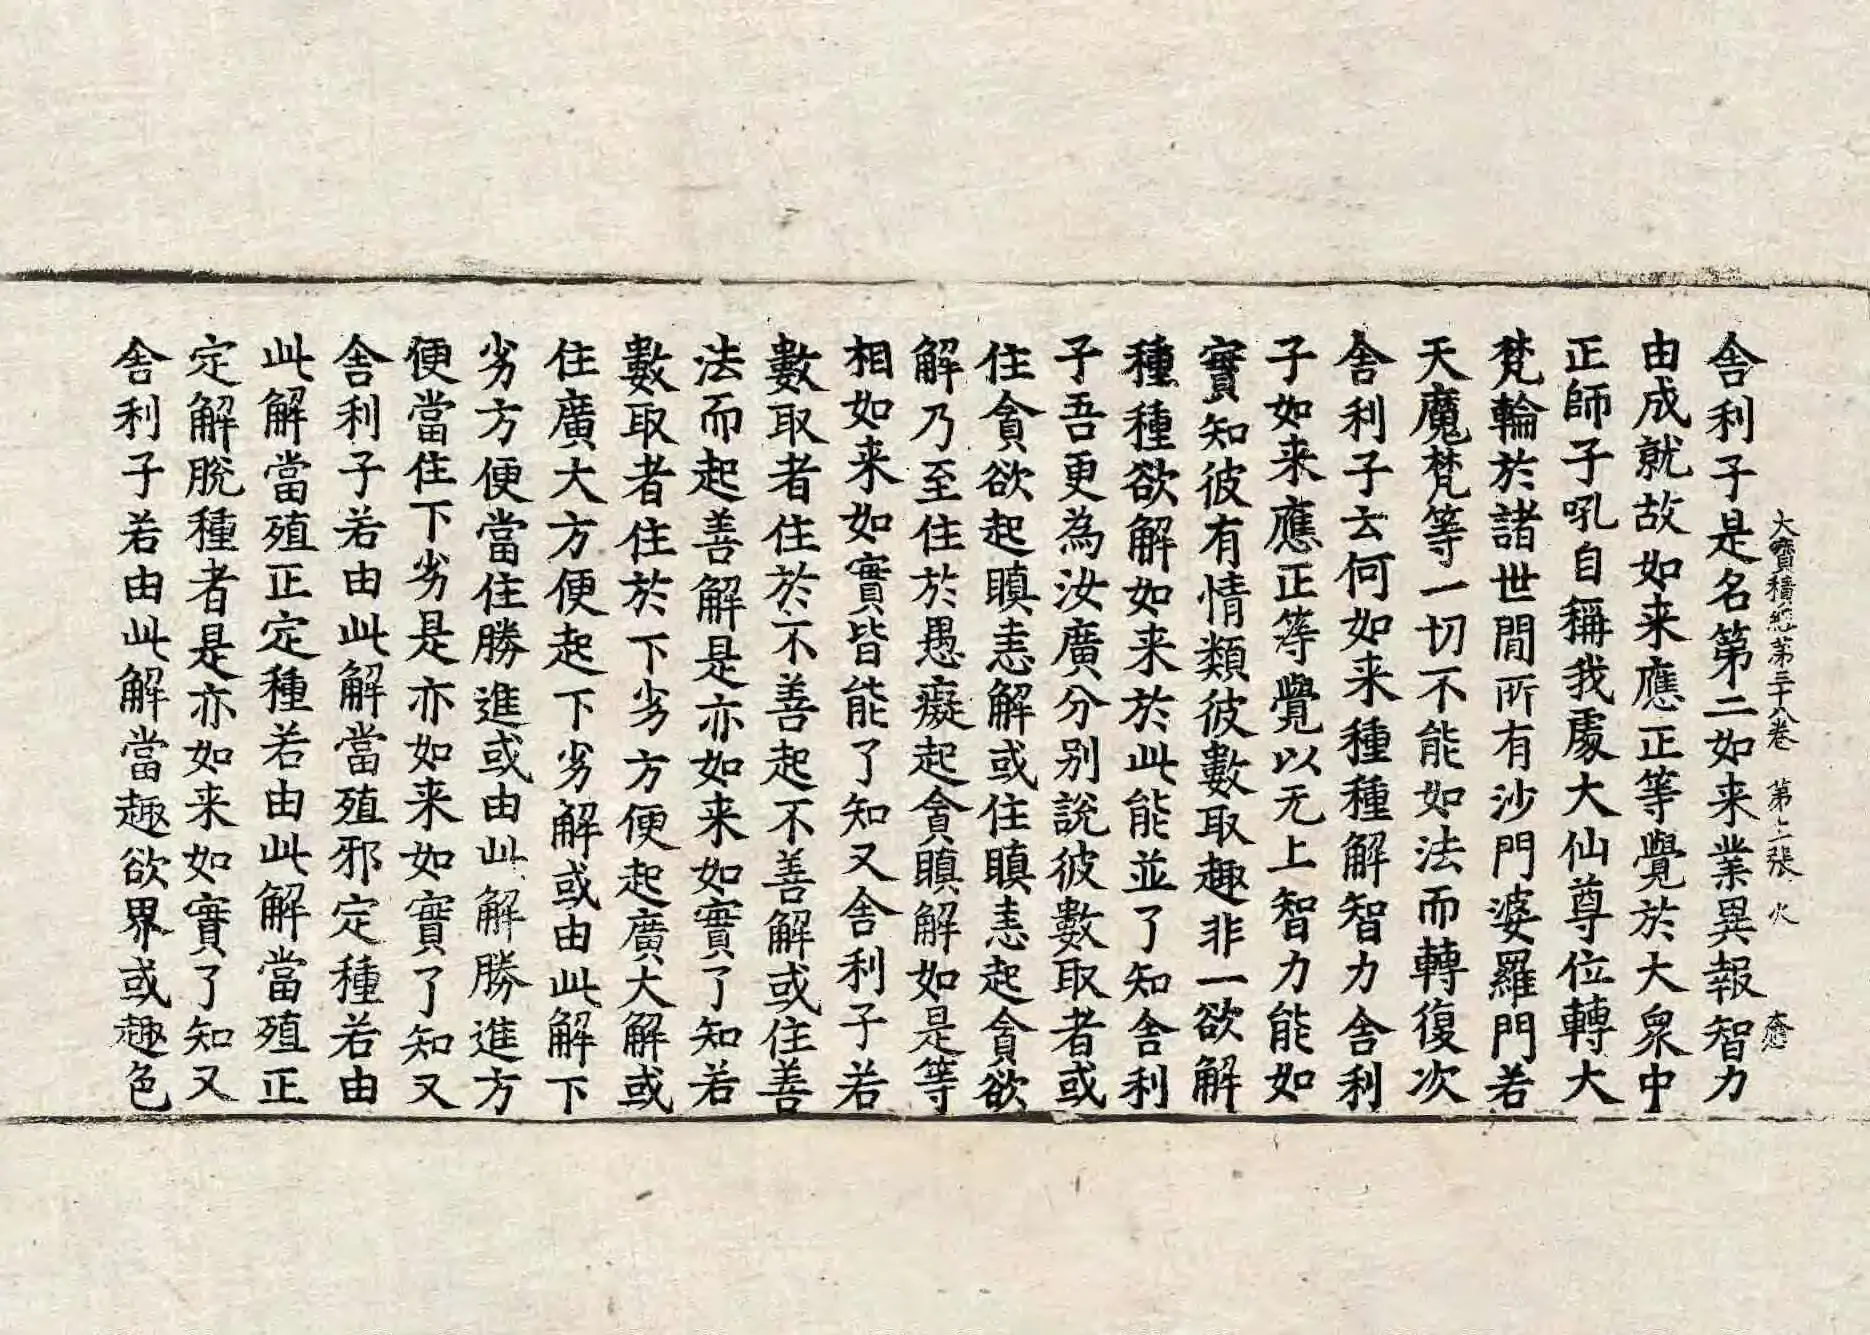 舍利子是名第二如来業異報智力
大寶積經第三十八卷 第七張 火
由成就故如来應正等覺於大衆中
正師子吼自稱我處大仙尊位轉大
梵輪於諸世間所有沙門婆羅門若
天魔梵等一切不能如法而轉復次
舍利子云何如来種種解智力舍利
子如来應正等覺以无上智力能如
實知彼有情類彼數取趣非一欲解
種種欲解如来於此能並了知舍利
子吾更為汝廣分别說彼數取者或
住貪欲起瞋恚解或住瞋恚起貪欲
解乃至住於愚癡起貪瞋解如是等
相如来如實皆能了知又舍利子若
數取者住於不善起不善解或住善
法而起善解是亦如来如實了知若
數取者住於下劣方便起廣大解或
住廣大方便起下劣解或由此解下
劣方便當住勝進或由此解勝進方
便當住下劣是亦如来如實了知又
舍利子若由此解當殖邪定種若由
此解當殖正定種若由此解當殖正
定解脫種者是亦如来如實了知又
舍利子若由此解當趣欲界或趣色